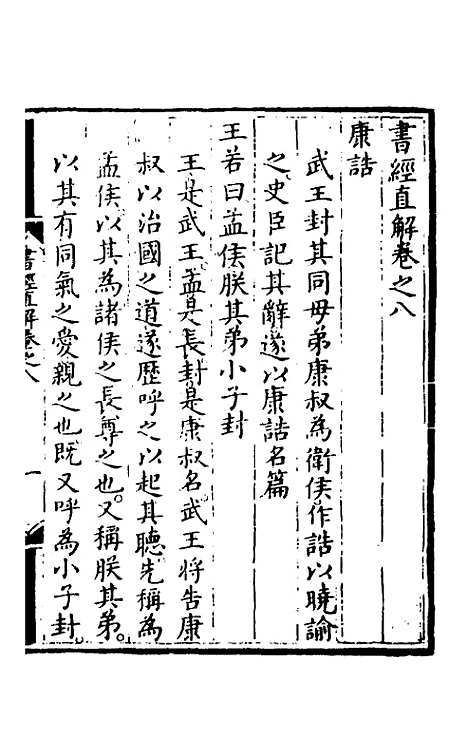 書經直解卷之八
康誥
武王封其同母弟康叔為衛侯作誥以曉諭
之史臣記其辭遂以康誥名篇
王若曰孟侯朕其弟小子封
王是武王孟是長封是康叔名武王將告康
叔以治國之道遂歷呼之以起其聽先稱為
孟侯以其為諸侯之長尊之也又稱朕其弟
以其有同氣之愛親之也既又呼為小子封
書經直解卷之八
一